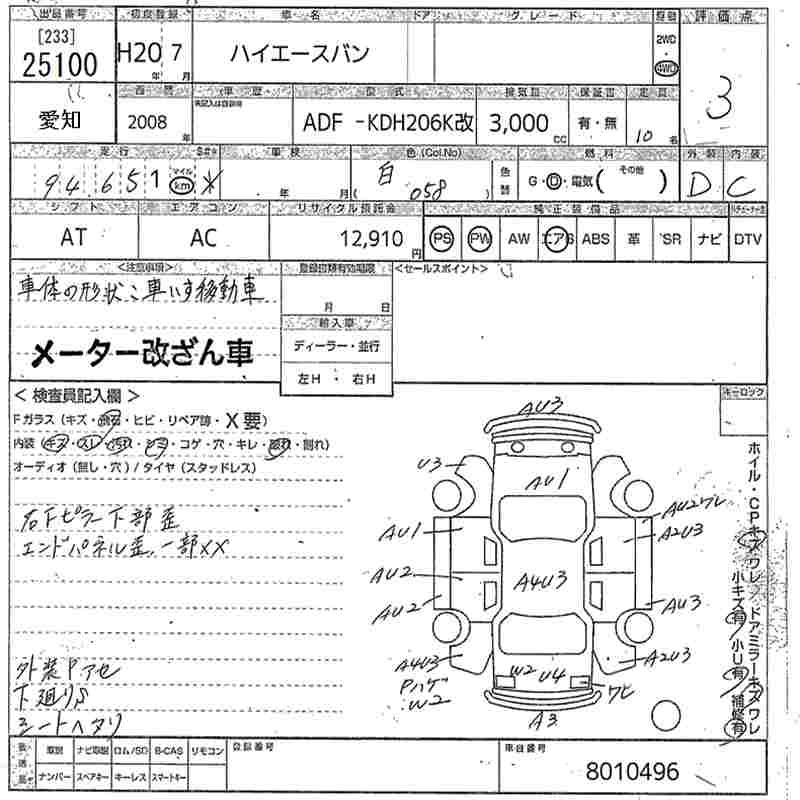 出品番号 初度登録 車名 ドア グレード 原動 評価点
[233]
25100
H20 年 7 月
ハイエースバン
2WD
4WD
3
愛知
西暦 車歴 型式 排気量 保証書 定員
2008 年
ADF -KDH206K改
3,000 cc
有・無
10 名
走行 車検 色(Col.No) 燃料 外装 内装
94651 マイル km ※
年 月
白 058
色替
G・D・電気( その他 )
D C
シフト エアコン リサイクル預託金 純正装備品
AT AC 12,910 円
PS PW AW エアB ABS 革 SR ナビ DTV
<注意事項> 登録書類有効期限 <セールスポイント>
車体の形状:車いす移動車
月 日
輸入車
ディーラー・並行
左H ・ 右H
メーター改ざん車
< 検査員記入欄 >
キーロック
Fガラス (キズ・飛石・ヒビ・リペア跡・X要)
内装 (キズ・スレ・汚れ・シミ・コゲ・穴・キレ・割れ)
オーディオ (無し・穴) / タイヤ (スタッドレス)
右下ピラー下部歪
エンドパネル歪、一部XX
外装Pアセ
下廻りS
シートヘタリ
AU3
U3
AU1
AU2ワレ
A2U3
AU1
AU2
A4U3
AU2
AU3
A4U3
Pハゲ
W2
W2 U4
A2U3
ワヒ
A3
ホイル・CPキズワレ/ドアミラーキズワレ
小キズ有/小U有/補修有
取説 ナビ取説 ロム/SD B-CAS リモコン
ナンバー スペアキー キーレス スマートキー
登録番号
車台番号
8010496